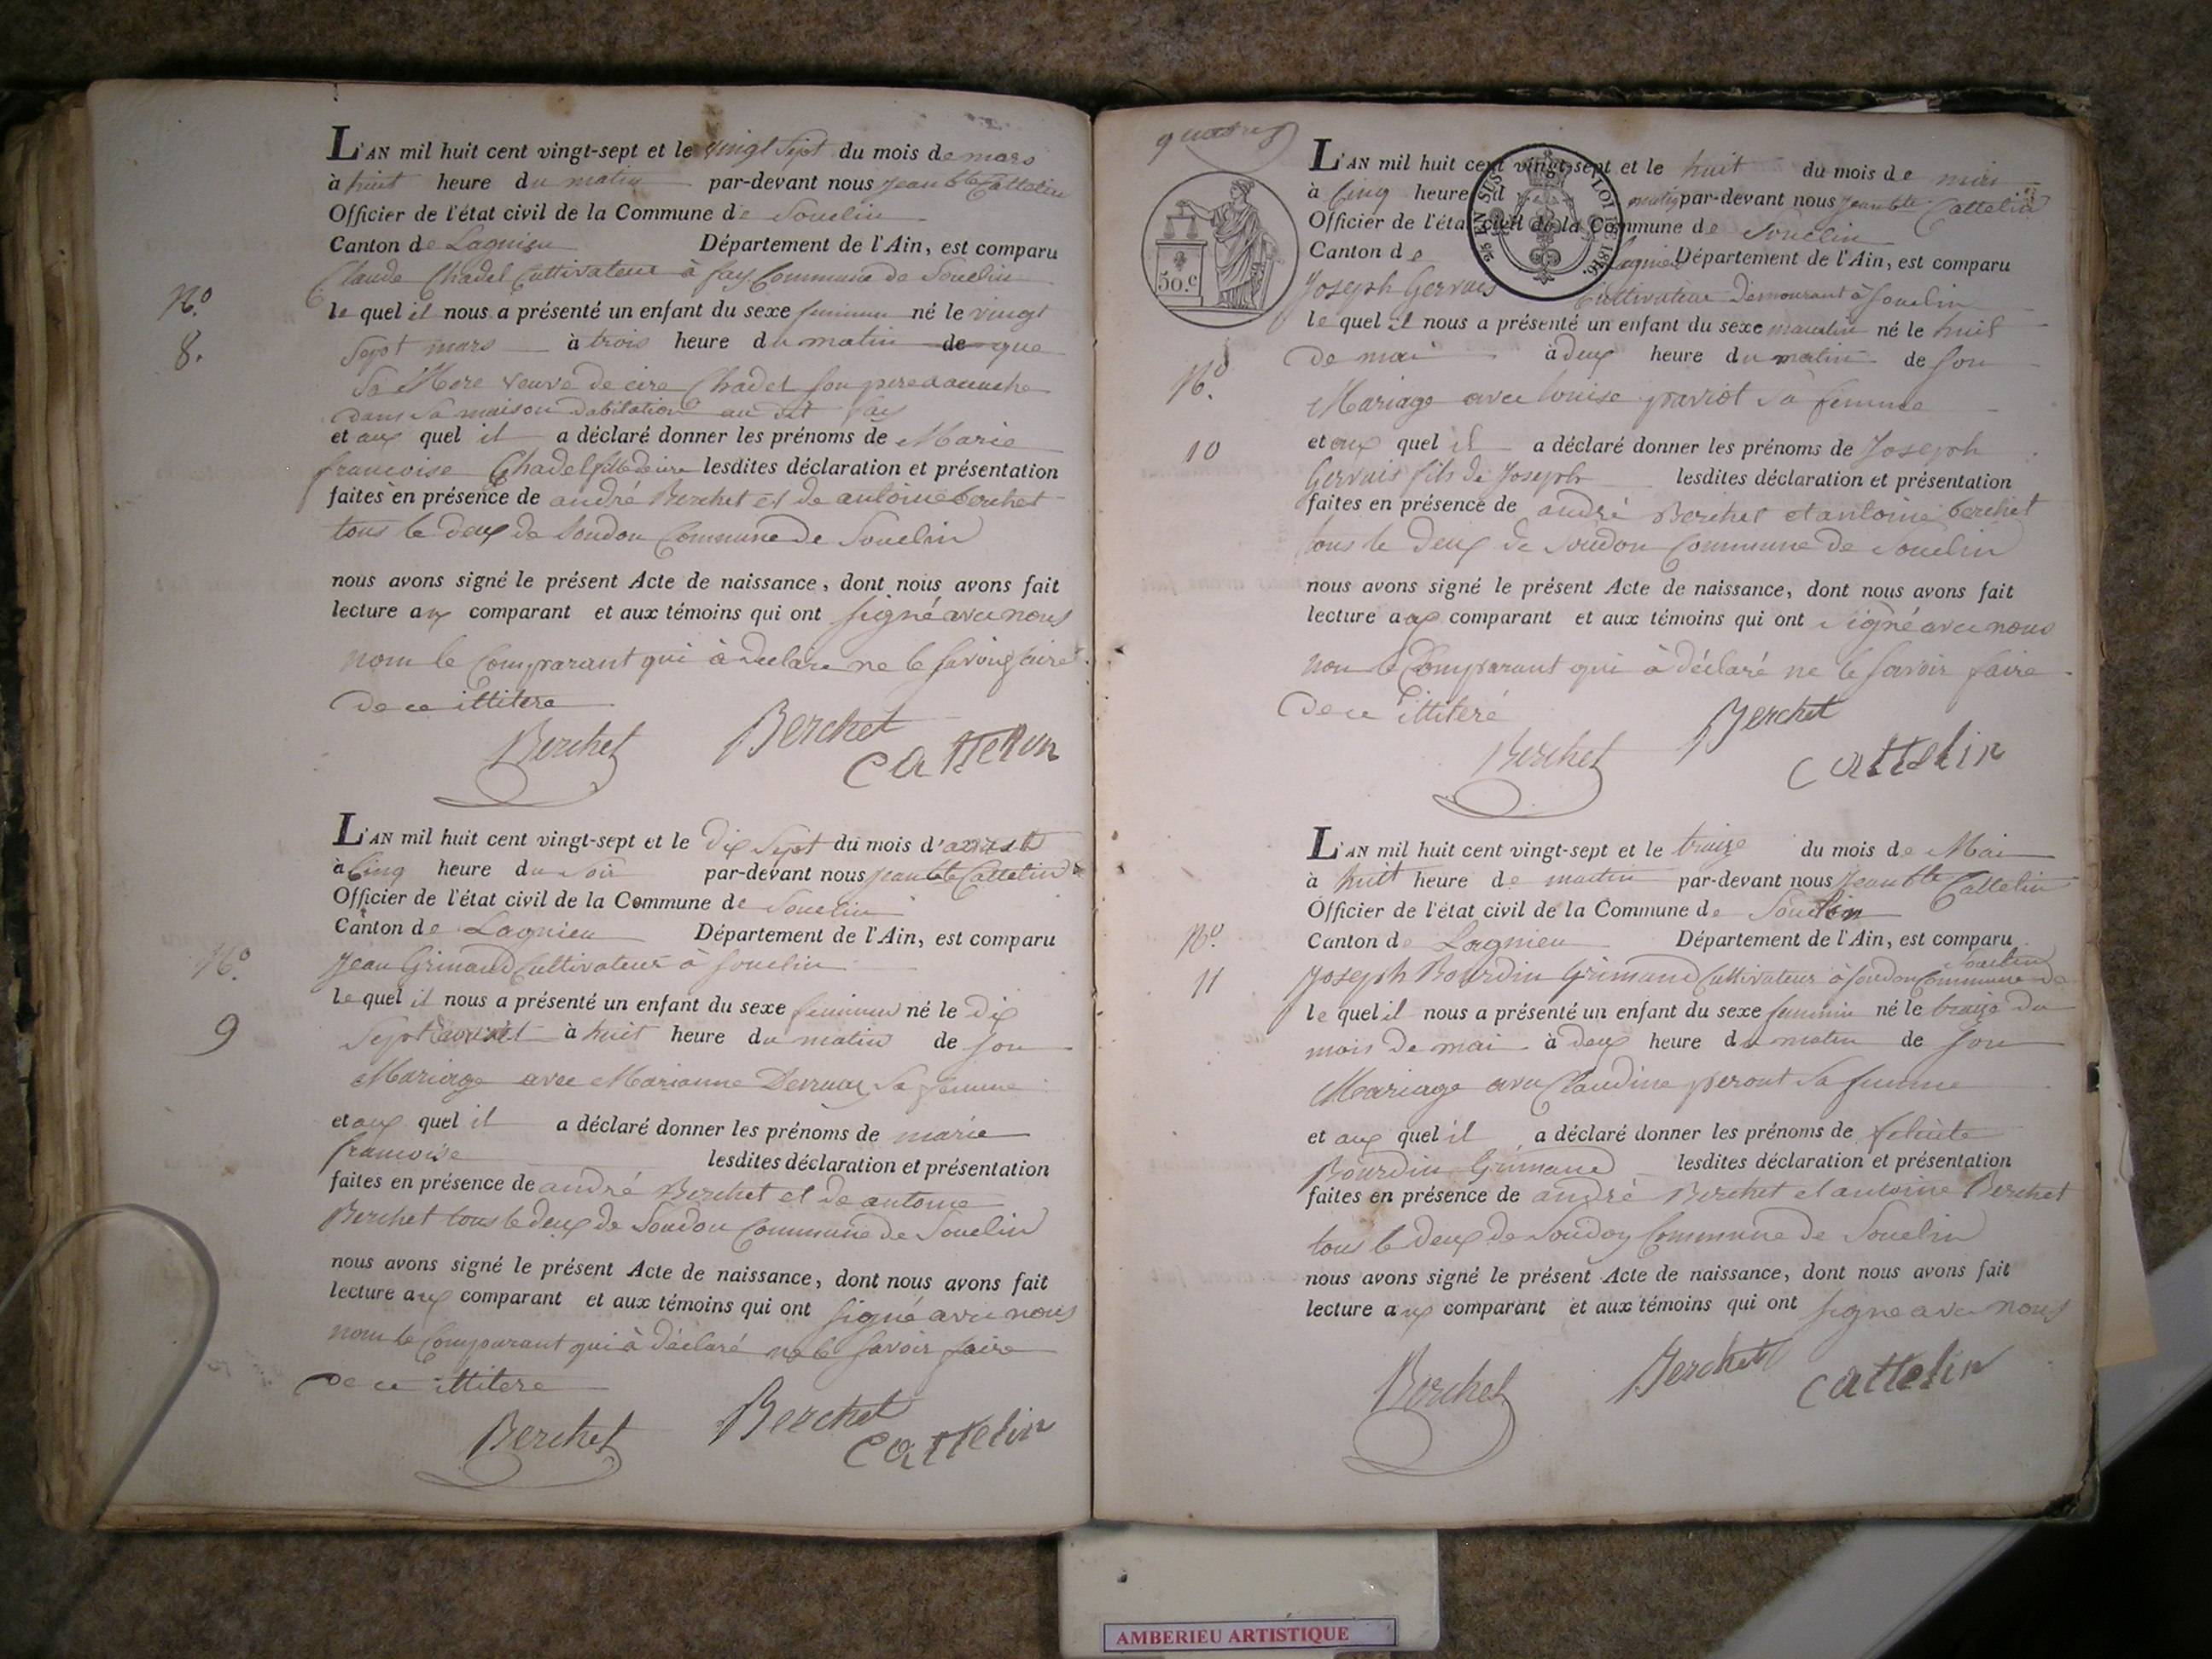 L'AN mil huit cent vingt-sept et le vingt Sept du mois de mars
à huit heure du matin par-devant nous jean bte Cattelin
Officier de l'état civil de la Commune de Souclin
Canton de Lagnieu Département de l'Ain, est comparu
Claude Chadel Cultivateur à fay Commune de Souclin
N.o
8.
le quel il nous a présenté un enfant du sexe feminin né le vingt
Sept mars à trois heure du matin de que
Sa Mere veuve de Chadel son pere
dans Sa maison dabitation au dit fay
et aux quel il a déclaré donner les prénoms de Marie
francoise Chadel fille lesdites déclaration et présentation
faites en présence de andré Berchet et de antoine berchet
tous le deux de Soudon Commune de Souclin
nous avons signé le présent Acte de naissance, dont nous avons fait
lecture aux comparant et aux témoins qui ont signé avec nous
nom le Comparant qui à declare ne le savoir faire
de ce ittitere
Berchet Berchet cattelin
L'AN mil huit cent vingt-sept et le dix Sept du mois d'avril
à Cinq heure du Soir par-devant nous jean bte Cattelin
Officier de l'état civil de la Commune de Souclin
Canton de Lagnieu Département de l'Ain, est comparu
N.o
9
Jean Grimaud Cultivateur à Souclin
le quel il nous a présenté un enfant du sexe feminin né le dix
Sept à huit heure du matin de son
Mariage avec Marianne Sa femme
et aux quel il a déclaré donner les prénoms de marie
francoise lesdites déclaration et présentation
faites en présence de andré Berchet et de antoine
Berchet tous le deux de Soudon Commune de Souclin
nous avons signé le présent Acte de naissance, dont nous avons fait
lecture aux comparant et aux témoins qui ont signé avec nous
nom le Comparant qui à déclaré ne le savoir faire
de ce ittitere
Berchet Berchet cattelin
50.c
LOI DE 1816.
L'AN mil huit cent vingt-sept et le huit du mois de mai
à Cinq heure d matin par-devant nous jean bte Cattelin
Officier de l'état civil de la Commune de Souclin
Canton de Lagnieu Département de l'Ain, est comparu
Joseph Gervais Cultivateur demourant à Souclin
le quel il nous a présenté un enfant du sexe masculin né le huit
de mai à deux heure du matin de son
N.o
10
Mariage avec louise pariot Sa femme
et aux quel il a déclaré donner les prénoms de Joseph
Gervais fils de Joseph lesdites déclaration et présentation
faites en présence de andré Berchet et antoine berchet
tous le deux de Soudon Commune de Souclin
nous avons signé le présent Acte de naissance, dont nous avons fait
lecture aux comparant et aux témoins qui ont Signé avec nous
non le Comparant qui à déclaré ne le savoir faire
de ce ittiteré
Berchet Berchet cattelin
L'AN mil huit cent vingt-sept et le traize du mois de Mai
à huit heure de matin par-devant nous Jean bte Cattelin
Officier de l'état civil de la Commune de Souclin
N.o
11
Canton de Lagnieu Département de l'Ain, est comparu
Joseph Bourdin Grimaud Cultivateur à Soudon Commune de Souclin
le quel il nous a présenté un enfant du sexe feminin né le traize du
mois de mai à deux heure du matin de son
Mariage avec Claudine peront Sa femme
et aux quel il a déclaré donner les prénoms de felicite
Bourdin Grimaud lesdites déclaration et présentation
faites en présence de andré Berchet et antoine Berchet
tous le deux de Soudon Commune de Souclin
nous avons signé le présent Acte de naissance, dont nous avons fait
lecture aux comparant et aux témoins qui ont signe avec nous
Berchet Berchet cattelin
AMBERIEU ARTISTIQUE